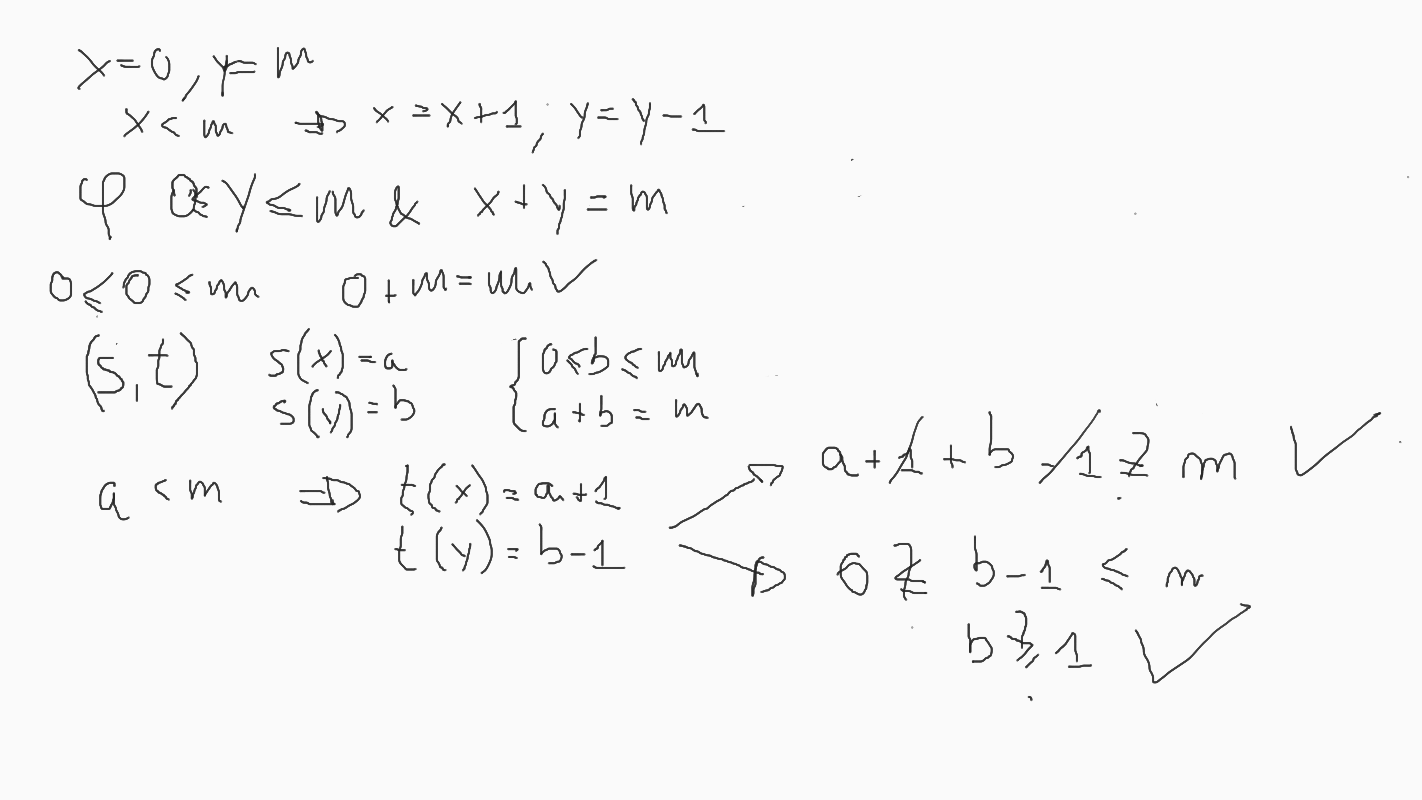 x=0, y=m
x<m ⇒ x=x+1, y=y-1
φ 0≤y≤m & x+y=m
0≤0≤m 0+m=m ✓
(s,t) s(x)=a { 0≤b≤m
s(y)=b a+b=m
a<m ⇒ t(x)=a+1 a+1+b-1 ≟ m ✓
t(y)=b-1 0 ≤? b-1 ≤ m
b ≥? 1 ✓